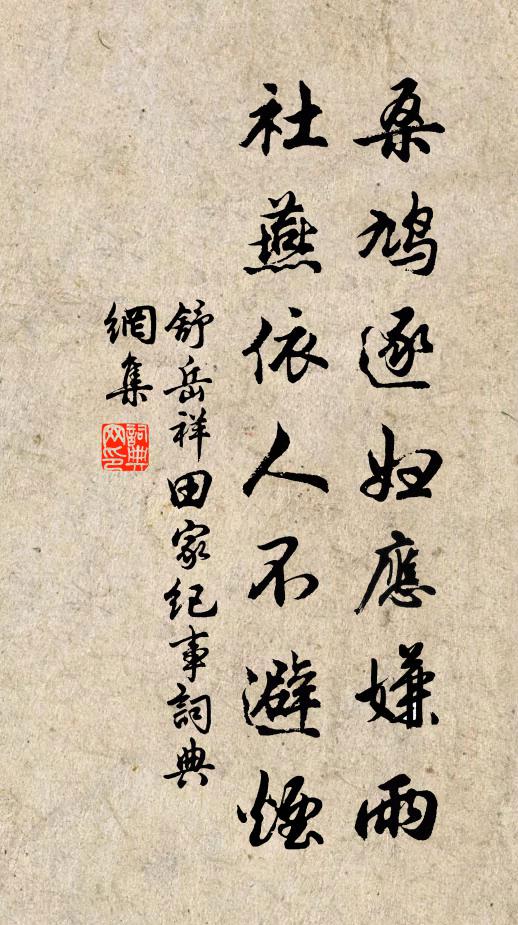 桑鳩逐妇應嫌雨
社燕依人不避煙
舒岳祥田家纪事詞典
網集
詞典
网印